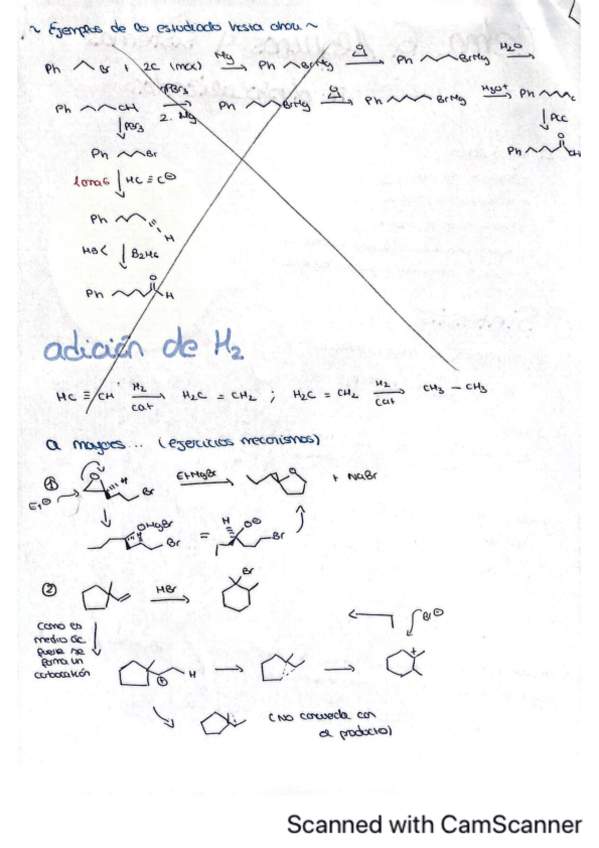 ~ Ejemplos de lo estudiado hasta ahora ~
Ph Br + 2C (max) Mg Ph BrMg O Ph BrMg H₂O
Ph OH PBr₃ 2. Mg Ph BrMg O Ph BrMg H₃O⁺ Ph
PBr₃ PCC
Ph Br Ph O
HC ≡ C⊖
Ph H
B₂H₆
Ph O H
adición de H₂
HC ≡ CH H₂ cat H₂C = CH₂ ; H₂C = CH₂ H₂ cat CH₃ − CH₃
a mayores... (ejercicios mecanismos)
① O H Br EtMgBr O + NaBr
Et⊖
OMgBr Br = H O⊖ Br
② HBr Br
Como es medio ác. Br⊖
fuera se
forma un
carbocatión ⊕ H +
(NO concuerda con
el producto)
Scanned with CamScanner